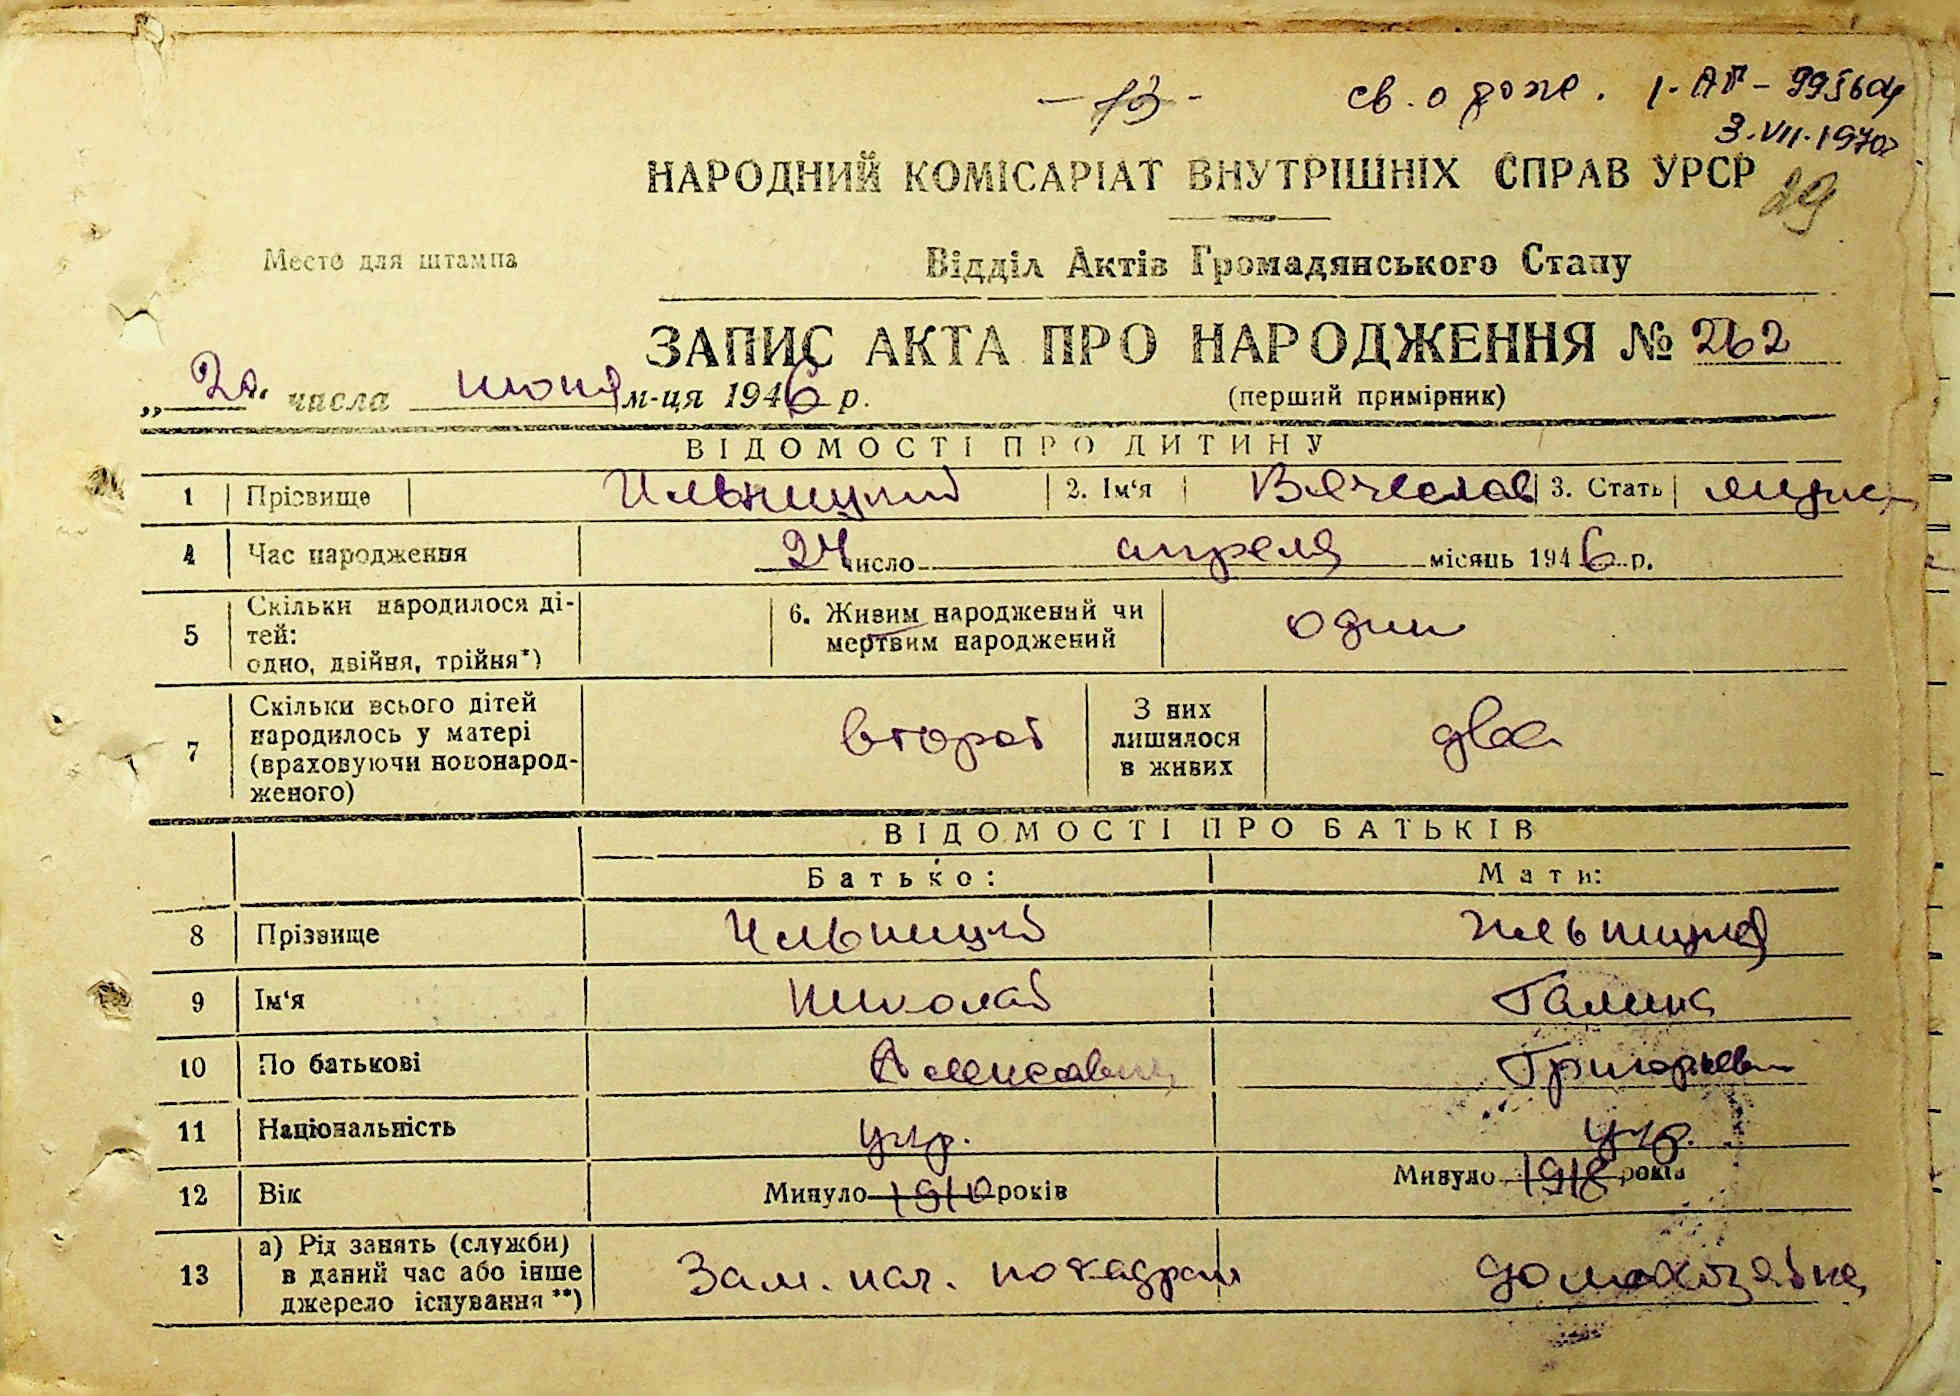 - 13 -
св. о рожд. 1-АП-995604
3.VII.1970г
29
НАРОДНИЙ КОМІСАРІАТ ВНУТРІШНІХ СПРАВ УРСР
Место для штампа
Відділ Актів Громадянського Стану
ЗАПИС АКТА ПРО НАРОДЖЕННЯ № 262
„ числа июня м-ця 1946 р.
(перший примірник)
ВІДОМОСТІ ПРО ДИТИНУ
1 Прізвище Ильницкий 2. Ім‘я Вячеслав 3. Стать
4 Час народження 24 число апреля місяць 1946 р.
5 Скільки народилося ді-
тей:
одно, двійня, трійня*)
6. Живим народжений чи
мертвим народжений
один
7 Скільки всього дітей
народилось у матері
(враховуючи новонарод-
женого)
второй
З них
лишилося
в живих
два
ВІДОМОСТІ ПРО БАТЬКІВ
Батько: Мати:
8 Прізвище Ильницкий Ильницкая
9 Ім‘я Николай Галина
10 По батькові Алексеевич Григорьевн
11 Національність укр. укр.
12 Вік Минуло 1910 років Минуло 1918 років
13 а) Рід занять (служби)
в даний час або інше
джерело існування **)
Зам. нач. по кадрам домохозяйка